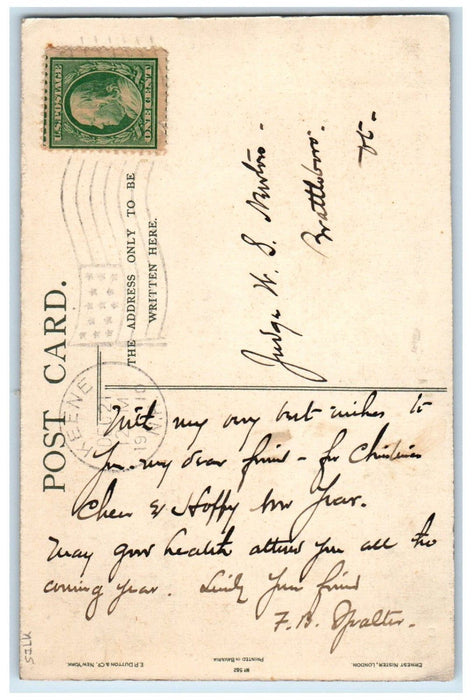 U.S. POSTAGE
ONE CENT
POST CARD.
THE ADDRESS ONLY TO BE
WRITTEN HERE.
KEENE
DEC 21
1910
N.H.
Judge W. S. Newton -
Brattleboro -
Vt -
With my very best wishes to
you - my dear friend - for Christmas
Cheer & Happy New Year.
May good health attend you all the
coming year. Sincerely your friend
F.B.
SILK
E.P. DUTTON & CO. NEW YORK.
No 562
PRINTED IN BAVARIA
ERNEST NISTER, LONDON.